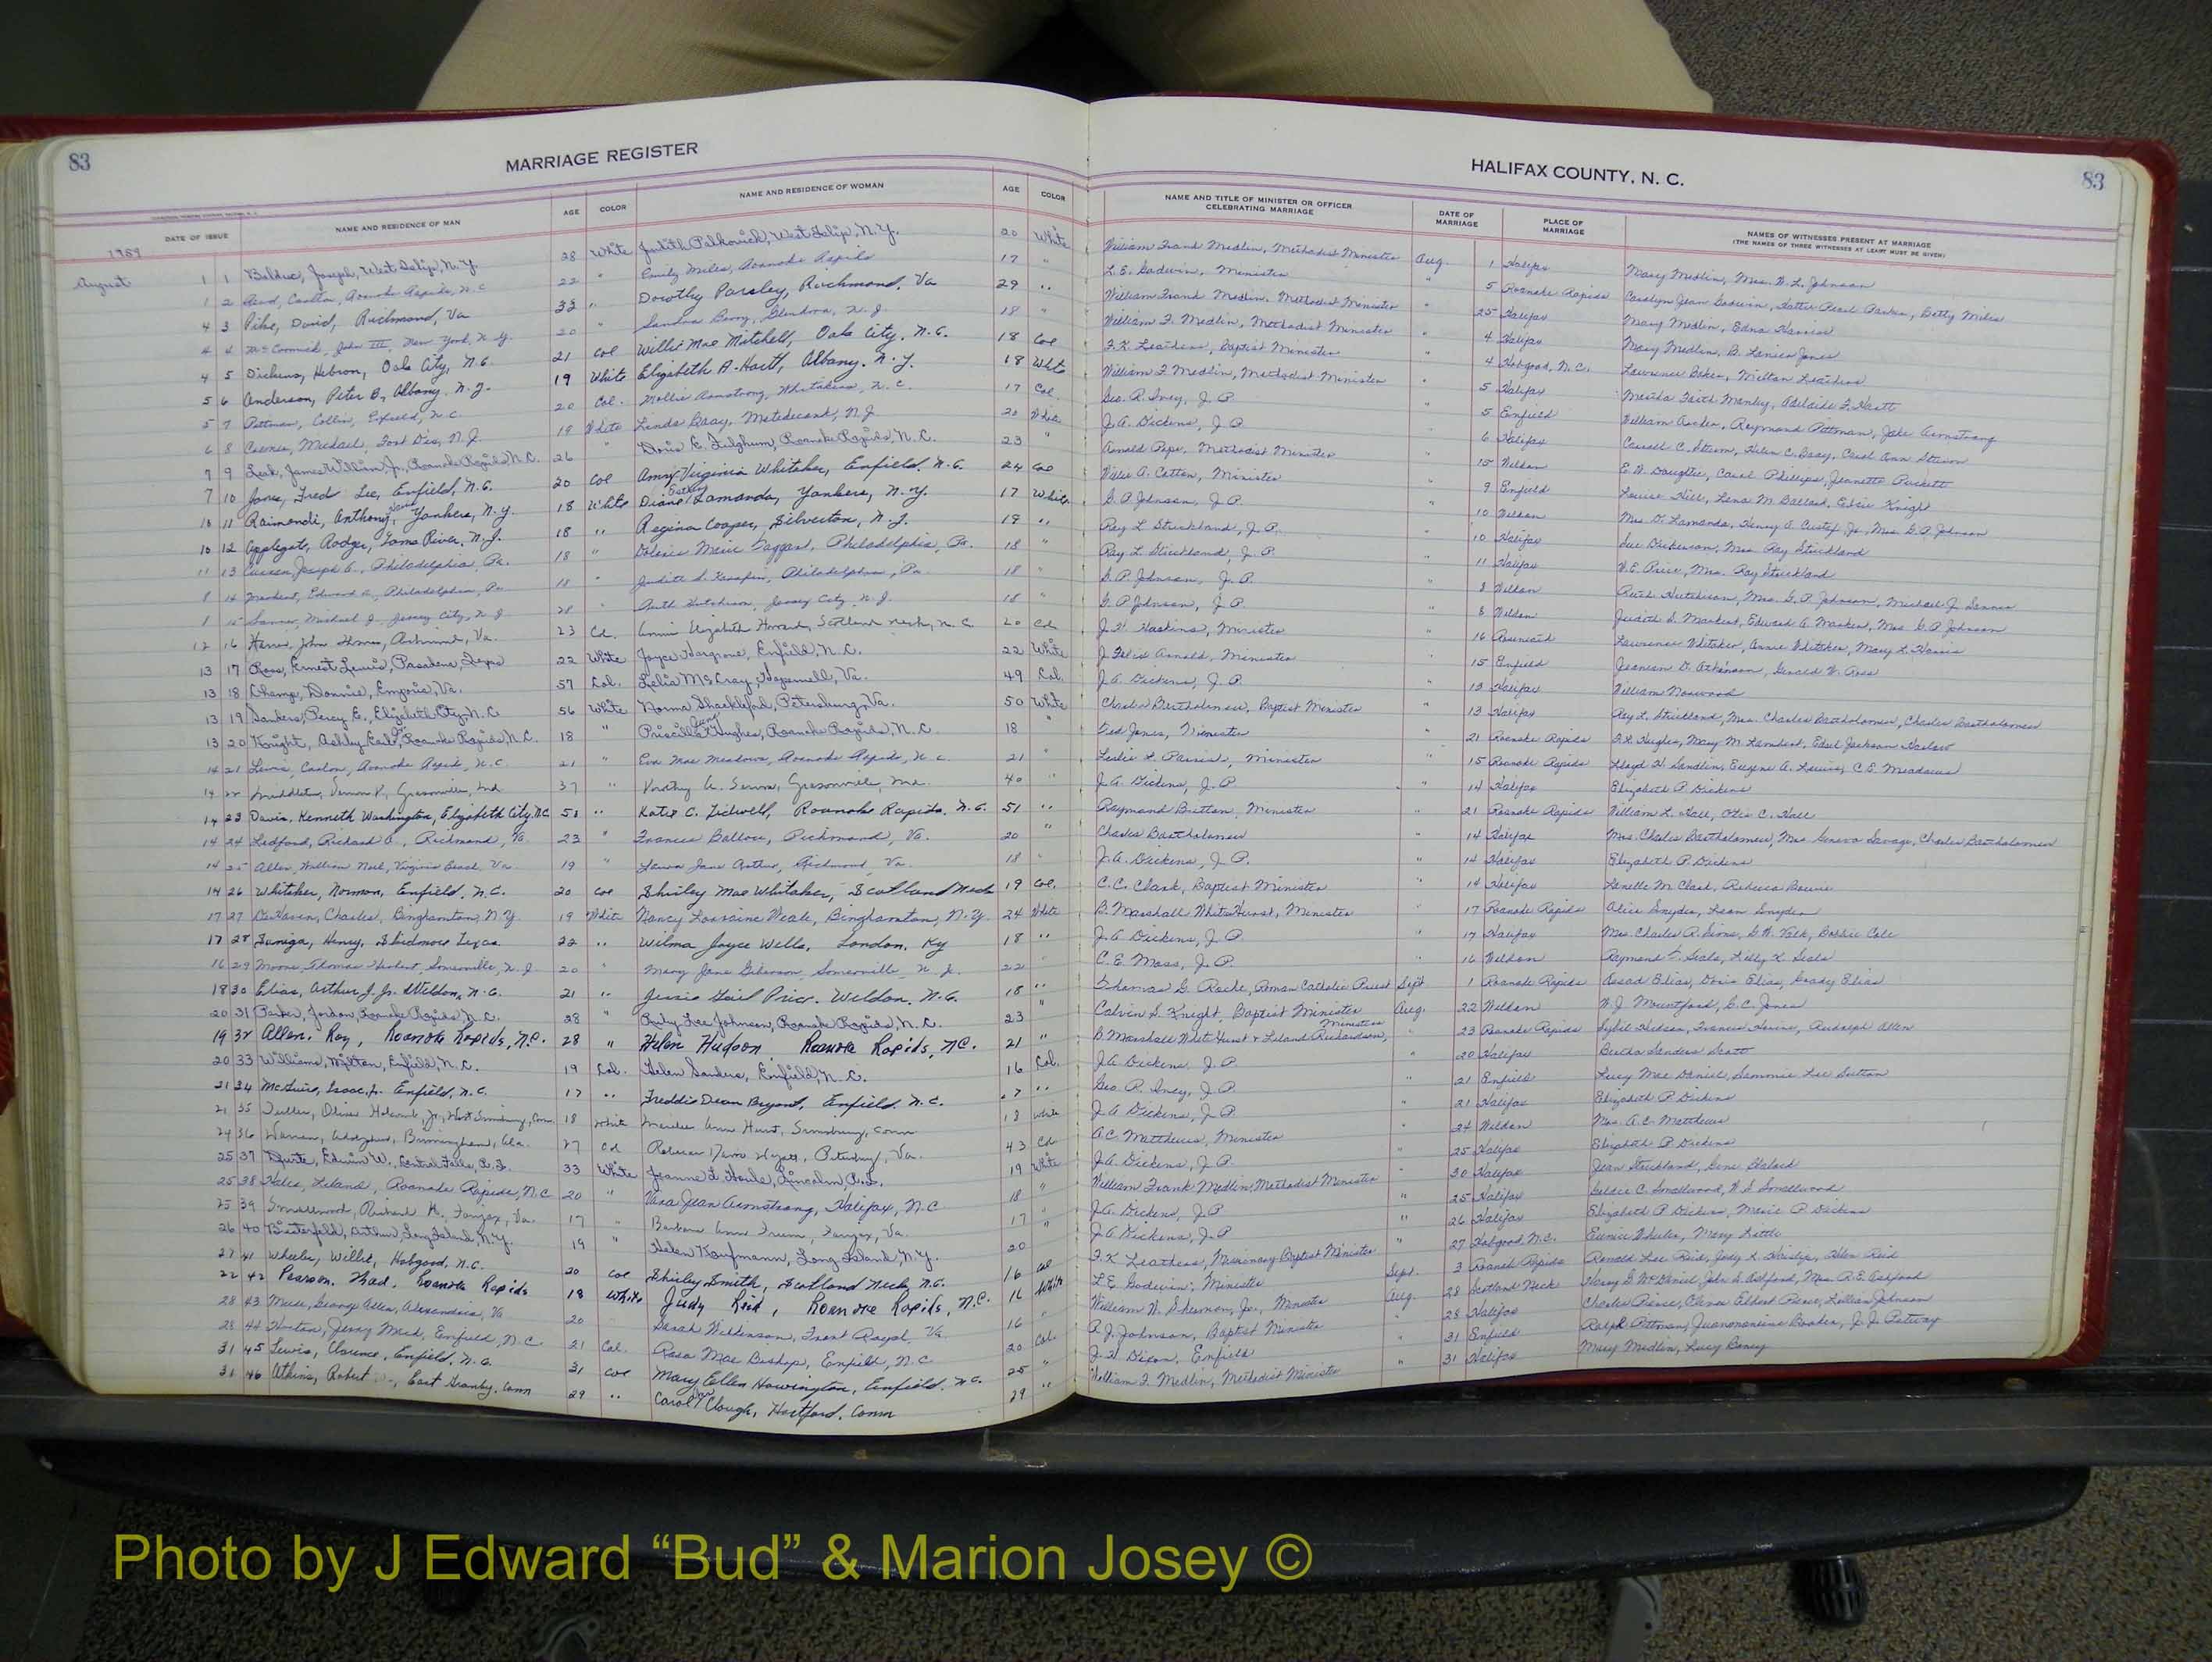 83
MARRIAGE REGISTER
DATE OF ISSUE
NAME AND RESIDENCE OF MAN
AGE
COLOR
NAME AND RESIDENCE OF WOMAN
AGE
COLOR
1959
August
1 1 Bolduc, Joseph, West Islip, N.Y. 28 White Judith Palkovich, West Islip, N.Y. 20 White
1 2 Roanoke Rapids, N.C. 22 " Emily Miles, Roanoke Rapids 17 "
4 3 Pike, David, Richmond, Va 33 " Dorothy Parsley, Richmond, Va 29 "
4 4 McCormick, John III, New York, N.Y. 20 " Sandra Berry, Glendora, N.J. 18 "
4 5 Dickens, Hebron, Oak City, N.C. 21 Col Willie Mae Mitchell, Oak City, N.C. 18 Col
5 6 Anderson, Peter B., Albany, N.Y. 19 White Elizabeth A. Hartt, Albany, N.Y. 18 White
5 7 Pittman, Collin, Enfield, N.C. 20 Col. Mollie Armstrong, Whitakers, N.C. 17 Col.
6 8 Michael, Fort Dix, N.J. 19 White Linda Bray, Metedeconk, N.J. 20 White
7 9 Leak, James William Jr., Roanoke Rapids N.C. 26 " Doris E. Filghum, Roanoke Rapids, N.C. 23 "
7 10 Jones, Fred Lee, Enfield, N.C. 20 Col Amy Virginia Whitaker, Enfield, N.C. 24 Col
10 11 Raimondi, Anthony, Yonkers, N.Y. 18 White Diane Lamanda, Yonkers, N.Y. 17 White
10 12 Applegate, Rodger, Toms River, N.J. 18 " Regina Cooper, Silverton, N.J. 19 "
11 13 Joseph, Philadelphia, Pa. 18 " Marie Taggart, Philadelphia, Pa. 18 "
8 14 Markert, Edward A., Philadelphia, Pa 18 " Judith S. Philadelphia, Pa 18 "
8 15 Michael J., Jersey City, N.J. 28 " Ruth Hutchison, Jersey City, N.J. 18 "
12 16 Harris, John Thomas, Richmond, Va. 23 Col. Annie Elizabeth Howard, Scotland Neck, N.C. 20 Col
13 17 Ross, Ernest Lewis, Pasadena, Texas 22 White Joyce Hargrove, Enfield, N.C. 22 White
13 18 Champ, Donnie, Emporia, Va. 57 Col. Lelia McCray, Hopewell, Va. 49 Col.
13 19 Sanders, Percy E., Elizabeth City, N.C. 56 White Norma Shackleford, Petersburg, Va. 50 White
13 20 Knight, Ashby Earl, Jr., Roanoke Rapids, N.C. 18 " Priscilla Hughes, Roanoke Rapids, N.C. 18 "
14 21 Lewis, Carlon, Roanoke Rapids, N.C. 21 " Eva Mae Meadows, Roanoke Rapids, N.C. 21 "
14 22 Middleton, Vernon P., Md 37 " Dorothy Md. 40 "
14 23 Davis, Kenneth Washington, Elizabeth City, N.C. 51 " Katie C. Tidwell, Roanoke Rapids, N.C. 51 "
14 24 Ledford, Richard A., Richmond, Va. 23 " Frances Ballou, Richmond, Va. 20 "
14 25 Allen, William Neil, Virginia Beach, Va. 19 " Laura Jane Arthur, Richmond, Va. 18 "
14 26 Whitaker, Norman, Enfield, N.C. 20 Col Shirley Mae Whitaker, Scotland Neck 19 Col.
17 27 DeHaven, Charles, Binghamton, N.Y. 19 White Nancy Lorraine Weale, Binghamton, N.Y. 24 White
17 28 Henry, Skidmore Texas 22 " Wilma Joyce Wells, London, Ky 18 "
16 29 Moore, Thomas Herbert, Somerville, N.J. 20 " Mary Jane Giberson, Somerville, N.J. 22 "
18 30 Elias, Arthur J. Jr. Weldon, N.C. 21 " Jessie Gail Price, Weldon, N.C. 18 "
20 31 Parker, Jordan, Roanoke Rapids N.C. 28 " Ruby Lee Johnson, Roanoke Rapids, N.C. 23 "
19 32 Allen, Ray, Roanoke Rapids, N.C. 28 " Helen Hudson, Roanoke Rapids, N.C. 21 "
20 33 Williams, Milton, Enfield, N.C. 19 Col. Helen Sanders, Enfield, N.C. 16 Col.
21 34 McGuire, Isaac, Jr. Enfield, N.C. 17 " Freddie Dean Bryant, Enfield, N.C.
21 35 Tuller, Oliver Holcomb, Jr., West Simsbury, Conn. 18 White Ann Hunt, Simsbury, Conn 18 White
24 36 Warren, Adolphus, Birmingham, Ala. 27 Col Rebecca Petersburg, Va. 43 Col
25 37 Edwin W., Central Falls, R.I. 33 White Jeanne L. Houle, Lincoln, R.I. 19 White
25 38 Hales, Leland, Roanoke Rapids, N.C. 20 " Vara Jean Armstrong, Halifax, N.C. 18 "
25 39 Smallwood, Richard H., Fairfax, Va. 17 " Barbara Ann Fairfax, Va. 17 "
26 40 Arthur, Long Island, N.Y. 19 " Helen Kaufmann, Long Island, N.Y. 20
27 41 Wheeler, Willie, Hobgood, N.C. 20 Col Shirley Smith, Scotland Neck, N.C. 16 Col
22 42 Pearson, Thad, Roanoke Rapids 18 White Judy Reid, Roanoke Rapids, N.C. 16 White
28 43 Muse, George Allen, Alexandria, Va 20 Sarah Wilkinson, Front Royal, Va 16 "
28 44 Jerry Mick, Enfield, N.C. 21 Col. Rosa Mae Bishop, Enfield, N.C. 20 Col.
31 45 Lewis, Clarence, Enfield, N.C. 31 Col Mary Ellen Howington, Enfield, N.C. 25 "
31 46 Atkins, Robert East Granby, Conn 29 " Carol Clough, Hartford, Conn 29 "
HALIFAX COUNTY, N. C.
83
NAME AND TITLE OF MINISTER OR OFFICER
CELEBRATING MARRIAGE
DATE OF
MARRIAGE
PLACE OF
MARRIAGE
NAMES OF WITNESSES PRESENT AT MARRIAGE
(THE NAMES OF THREE WITNESSES AT LEAST MUST BE GIVEN)
William Frank Medlin, Methodist Minister Aug. 1 Halifax Mary Medlin, Mrs. W. L. Johnson
L. E. Godwin, Minister " 5 Roanoke Rapids Carolyn Jean Godwin, Hattie Pearl Parker, Betty Miles
William Frank Medlin, Methodist Minister " 25 Halifax Mary Medlin, Edna Harris
William F. Medlin, Methodist Minister " 4 Halifax Mary Medlin, B. Lanier Jones
F. K. Leathers, Baptist Minister " 4 Hobgood, N.C. Lawrence Baker, Milton Leathers
William F. Medlin, Methodist Minister " 5 Halifax Martha Faith Manley, Adelaide F. Hartt
Geo. R. Ivey, J. P. 5 Enfield William Archer, Raymond Pittman, Jake Armstrong
J. A. Dickens, J. P. 6 Halifax Carroll C. Helen C. Bray, Carol Ann
Arnold Pope, Methodist Minister 15 Weldon E. W. Daughtie, Carol Phillips, Jeanette Puckett
Willie A. Cotton, Minister 9 Enfield Louise Hill, Lena M. Ballard, Elsie Knight
G. P. Johnson, J. P. 10 Weldon Mrs. D. Lamanda, Henry A. Custof, Jr., Mrs. G. P. Johnson
Ray L. Strickland, J. P. 10 Halifax Sue Dickerson, Mrs. Ray Strickland
Ray L. Strickland, J. P. 11 Halifax W. E. Price, Mrs. Ray Strickland
G. P. Johnson, J. P. 8 Weldon Ruth Hutchison, Mrs. G. P. Johnson, Michael J.
G. P. Johnson, J. P. 8 Weldon Judith S. Markert, Edward A. Markert, Mrs. G. P. Johnson
J. H. Haskins, Minister 16 Lawrence Whitaker, Annie Whitaker, Mary L. Harris
J. Felix Arnold, Minister 15 Enfield Jeanean D. Atkinson, Gerald W. Ross
J. A. Dickens, J. P. 13 Halifax William Norwood
Charles Bartholomew, Baptist Minister 13 Halifax Ray L. Strickland, Mrs. Charles Bartholomew, Charles Bartholomew
Ted Jones, Minister 21 Roanoke Rapids Hughes, Mary M. Lambert, Edsel Jackson
Leslie L. Parrish, Minister 15 Roanoke Rapids Lloyd H. Sandlin, Eugene A. Lewis, C. E. Meadows
J. A. Dickens, J. P. 14 Halifax Elizabeth P. Dickens
Raymond Britton, Minister 21 Roanoke Rapids William L. Hall, Otis C. Hall
Charles Bartholomew 14 Halifax Mrs. Charles Bartholomew, Mrs. Geneva Savage, Charles Bartholomew
J. A. Dickens, J. P. 14 Halifax Elizabeth P. Dickens
C. C. Clark, Baptist Minister 14 Halifax Lenelle M. Clark, Rebecca
B. Marshall White Hurst, Minister 17 Roanoke Rapids Alice Snyder, Leon Snyder
J. A. Dickens, J. P. 17 Halifax Mrs. Charles R. Sims, G. W. Bobbie Cole
C. E. Moss, J. P. 16 Weldon Raymond F. Seals, Kelly K. Seals
Thomas G. Roche, Roman Catholic Priest Sept 1 Roanoke Rapids Asaad Elias, Doris Elias, Grady Elias
Calvin S. Knight, Baptist Minister Aug. 22 Weldon W. J. Mountford, C. C. Jones
B. Marshall White Hurst & Leland Richardson, Ministers 23 Roanoke Rapids Sybil Hudson, Francis Rudolph Allen
J. A. Dickens, J. P. 20 Halifax Bertha Sanders Scott
Geo. R. Ivey, J. P. 21 Enfield Lucy Mae Daniel, Sammie Lee Sutton
J. A. Dickens, J. P. 21 Halifax Elizabeth P. Dickens
A. C. Matthews, Minister 24 Weldon Mrs. A. C. Matthews
J. A. Dickens, J. P. 25 Halifax Elizabeth P. Dickens
William Frank Medlin, Methodist Minister 30 Halifax Jean Strickland, Gene
J. A. Dickens, J. P. 25 Halifax Goldie C. Smallwood, W. S. Smallwood
J. A. Dickens, J. P. 26 Halifax Elizabeth P. Dickens, Marie P. Dickens
F. K. Leathers, Missionary Baptist Minister 27 Hobgood N.C. Eunice Wheeler, Mary Kittle
L. E. Godwin, Minister Sept. 3 Roanoke Rapids Ronald Lee Reid, Judy K. Helen Reid
William N. Jr., Minister Aug. 28 Scotland Neck Harry G. McDaniel, John S. Ashford, Mrs. R. E. Ashford
R. J. Johnson, Baptist Minister 28 Halifax Charles Pierce, Elbert Pierce, Lillian Johnson
J. H. Dixon, Enfield 31 Enfield Ralph Pittman, Booker, J. J. Pettway
William F. Medlin, Methodist Minister 31 Halifax Mary Medlin, Lucy
Photo by J Edward “Bud” & Marion Josey ©